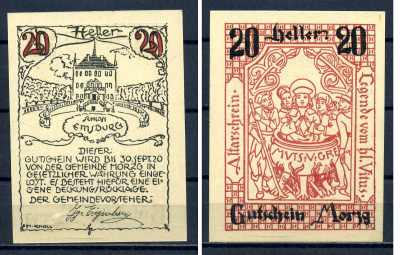 20 Heller 20
SCHLOSS
EMSBURG
DIESER
GUTSCHEIN WIRD BIS 30. SEPT. 20
VON DER GEMEINDE MORZG IN
GESETZLICHER WÄHRUNG EINGE-
LÖST. ES BESTEHT HIEFÜR EINE EI-
GENE DECKUNGSRÜCKLAGE.
DER GEMEINDEVORSTEHER:
20 Heller 20
Altarschrein
Legende vom hl. Vitus
Gutschein Morzg